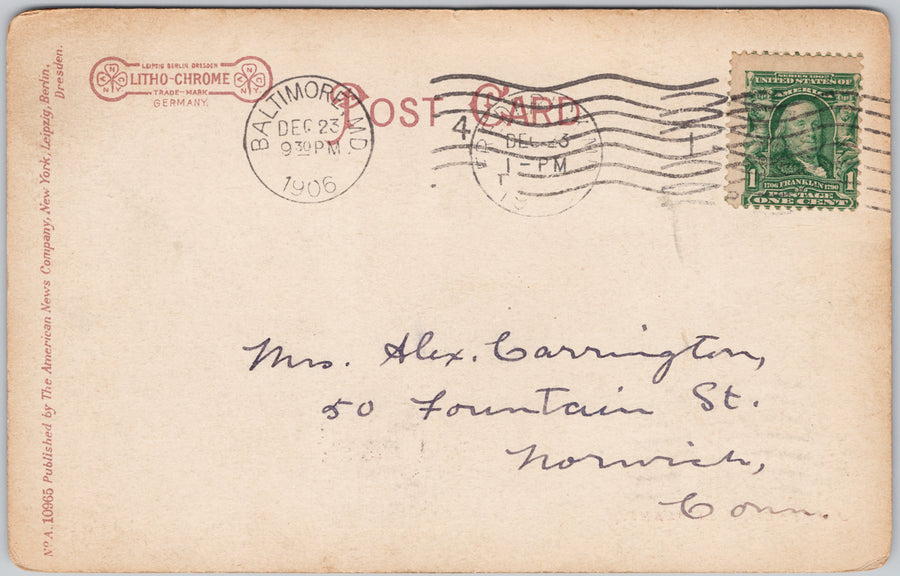 LEIPZIG BERLIN DRESDEN
LITHO-CHROME
TRADE-MARK
GERMANY.
POST CARD
BALTIMORE, MD.
DEC 23
930 PM
1906
4
DEC 23
1-PM
19
1
SERIES 1902
UNITED STATES OF
AMERICA
1 1706 FRANKLIN 1790 1
POSTAGE
ONE CENT
Mrs. Alex. Carrington,
50 Fountain St.
Norwich,
Conn.
No. A. 10965 Published by The American News Company, New York, Leipzig, Berlin,
Dresden.